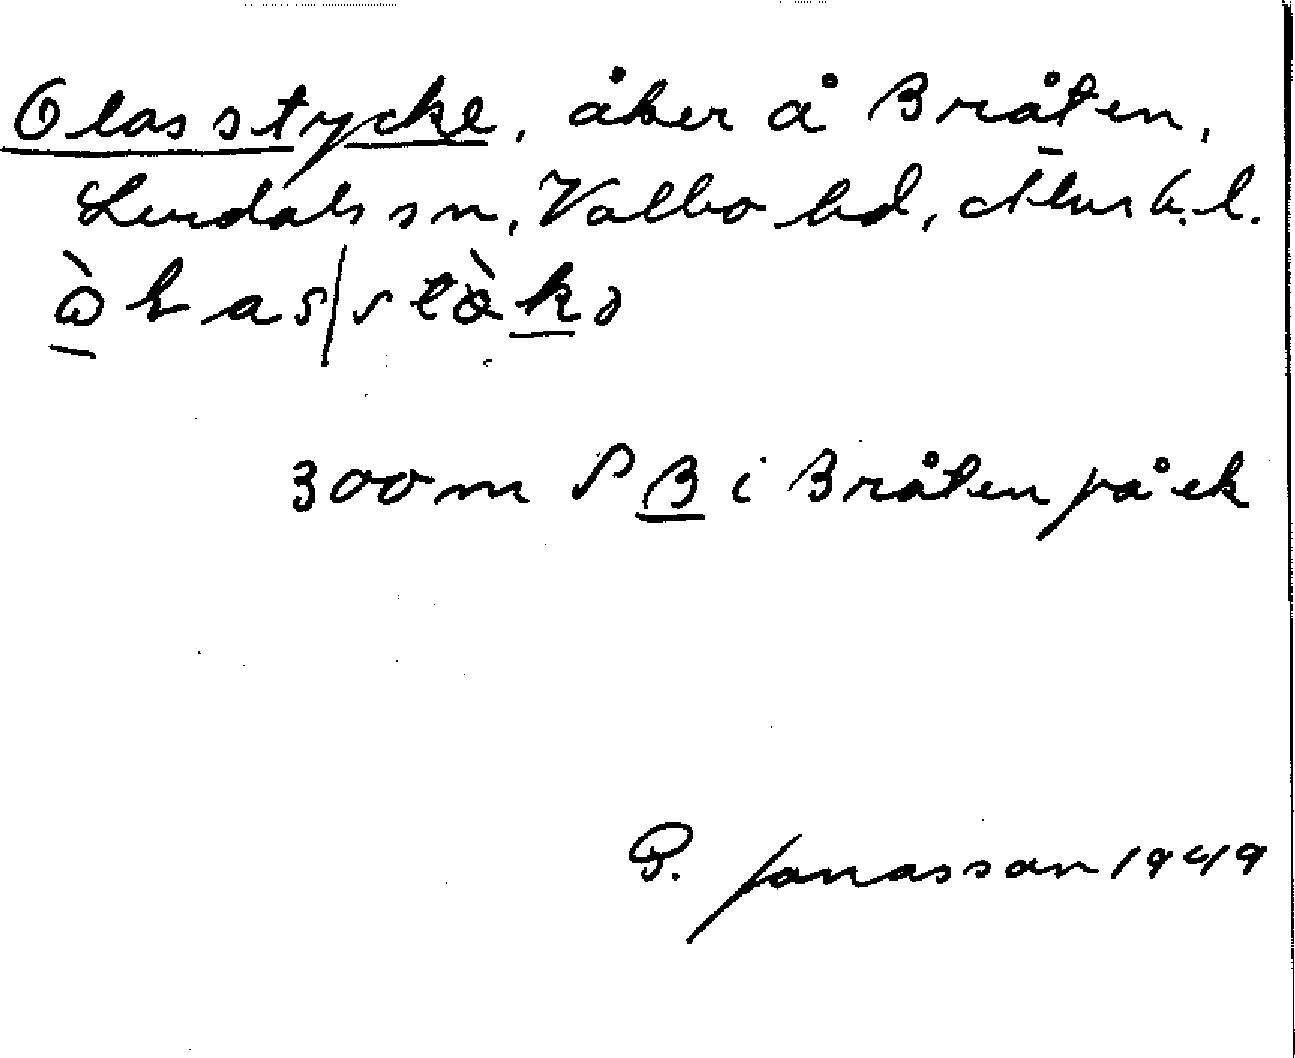 Olasstycke, åker å Bråten,
Lerdals sn, Valbo hd, Älvsb. l.
300 m S B i Bråten på ek
B. Jonasson 1949